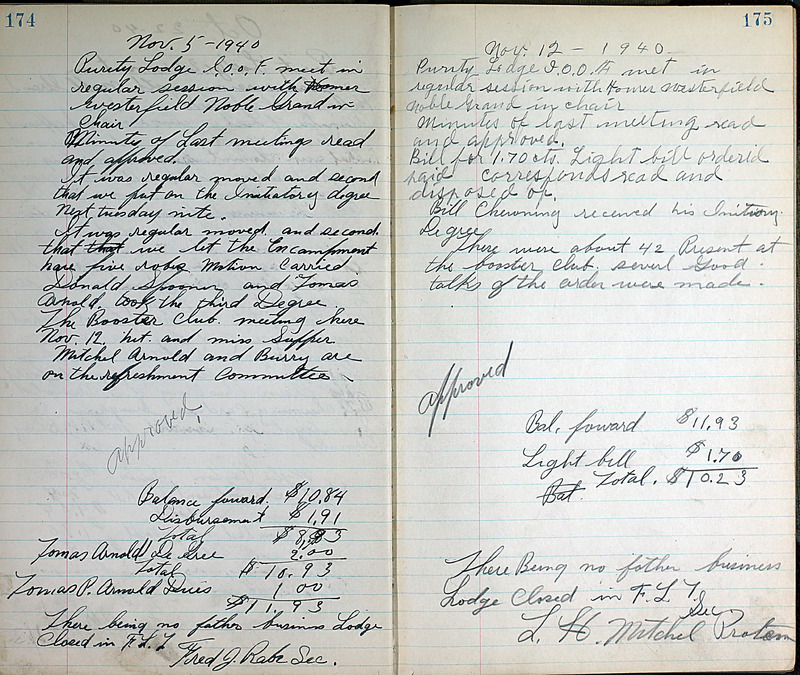 174
Nov. 5 - 1940
Purity Lodge I.O.O.F. meet in
regular session with Homer
Westerfield Noble Grand in
Chair.
Minutes of Last meetings read
and approved.
It was regular moved and second
that we put on the Initiatory degree
next tuesday nite.
It was regular moved and second
that that we let the Encampment
have five robes Motion Carried
Donald Spooner and Tomas
Arnold took the third Degree.
The Booster Club. meeting here
Nov. 12. hit. and miss Supper
Mitchel Arnold and Burry are
on the refreshment Committee
approved.
Balance foward. $10.84
Disbursement $1.91
Total $8.93
Tomas Arnold Degree 2.00
Total $10.93
Tomas P. Arnold Dues 1 00
$11.93
There being no father business Lodge
Closed in F. L T
Fred J. Rabe Sec.
175
Nov. 12 - 1940
Purity Lodge I.O.O.F met in
regular session with Homer Westerfield
Noble Grand in chair
Minutes of last meeting read
and approved.
Bill for 1.70 cts. Light bill orderid
paid corresponds read and
disposed of.
Bill Chewning received his Initiory
Degree
There were about 42 Present at
the booster club severl Good
talks of the order were made.
approved
Bal. foward $11.93
Light bill $1.70
Bal. Total. $10.23
There Being no father business
Lodge Closed in F. L T.
Sec
L. H. Mitchel Protem